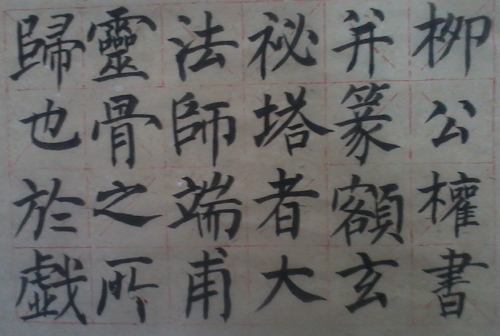 柳公權書
并篆額玄
祕塔者大
法師端甫
靈骨之所
歸也於戯